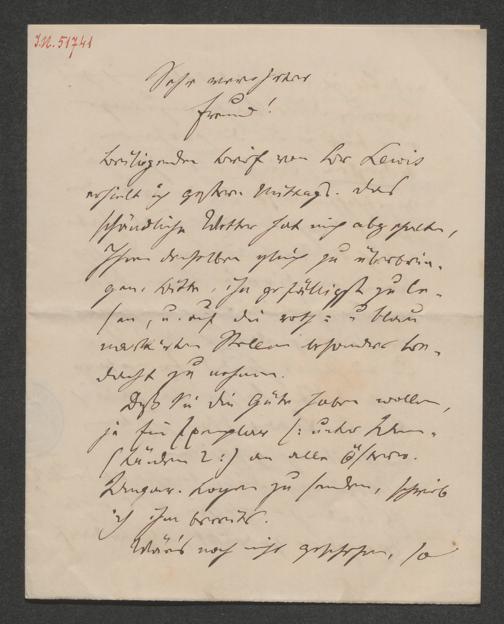 I.N. 51741
Sehr verehrter
Freund!
beiliegenden Brief von Dr Lewis
erhielt ich gestern Mittags. Das
schändliche Wetter hat mich abgehalten,
Ihnen denselben gleich zu überbrin-
gen. Bitte, ihn gefälligst zu le-
sen, u. auf die roth= u blau
markirten Stellen besonders Be-
dacht zu nehmen.
Daß Sie die Güte haben wollen,
je ein Exemplar (: unter Um-
ständen 2 :) an alle österr.
Ungar. Logen zu senden, schrieb
ich ihm bereits.
Wär's noch nicht geschehen, so